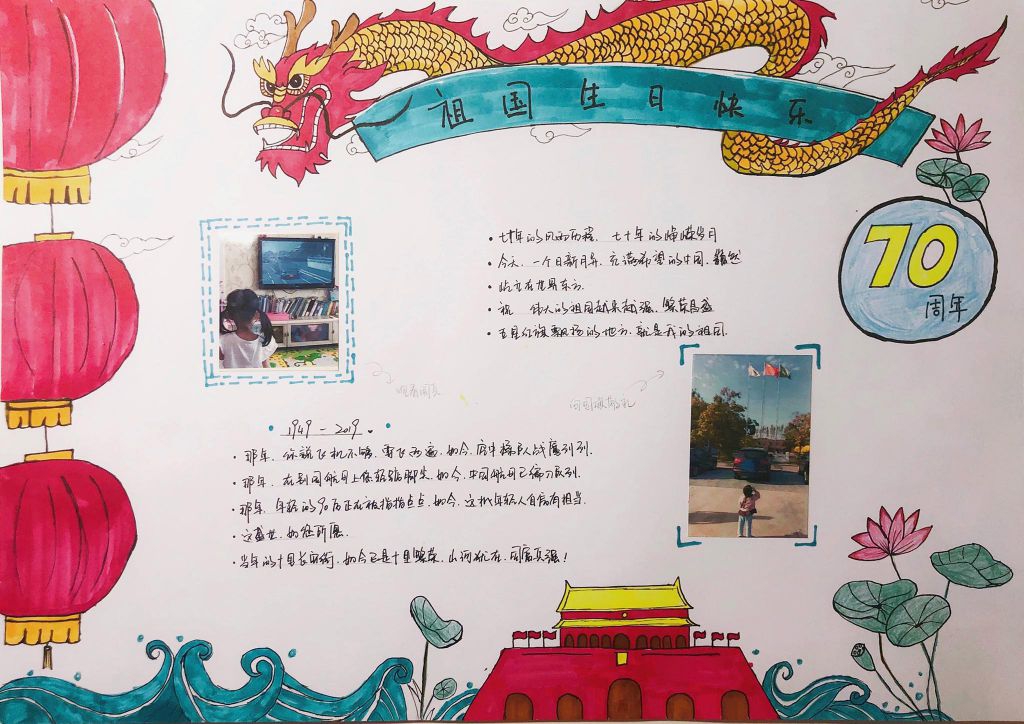 祖国生日快乐
70
周年
七十年的风雨历程，七十年的峥嵘岁月
今天，一个日新月异，充满希望的中国，巍然
屹立在世界东方.
祝 伟大的祖国越来越强、繁荣昌盛
五星红旗飘扬的地方，就是我的祖国.
观看阅兵
向国旗敬礼
1949－2019。
那年，你说飞机不够，要飞两遍，如今，空中梯队战鹰列列.
那年，在别国航母上你踮踮脚尖，如今，中国航母已编刀队列.
那年，年轻的90后正在被指指点点，如今，这批年轻人自信有担当.
这盛世，如您所愿.
当年的十里长安街，如今已是十里繁荣，山河犹在，国富兵强！